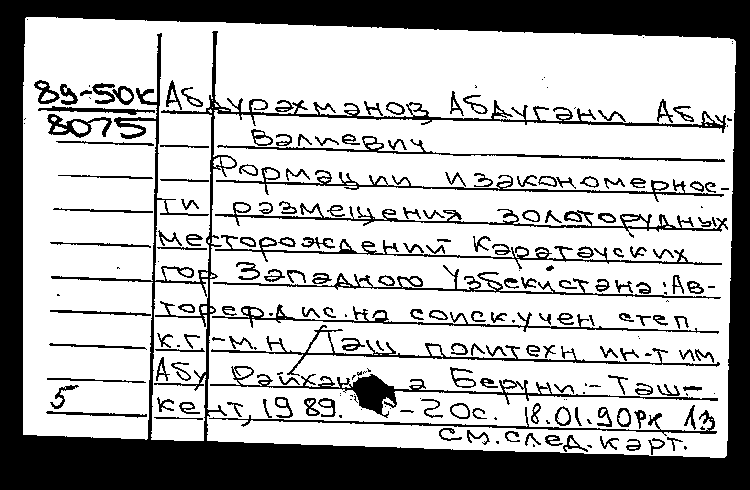 89-50к Абдурахманов, Абдугани Абду-
8075 валиевич
Формации и закономернос-
ти размещения золоторудных
месторождений Каратауских
гор Западного Узбекистана: Ав-
тореф. дис. на соиск. учен. степ.
к.г.-м.н. / Таш. политехн. ин-т им.
Абу Райхан а Беруни. - Таш-
5 кент, 1989. - 20с. 18.01.90РК 13
см. след. карт.